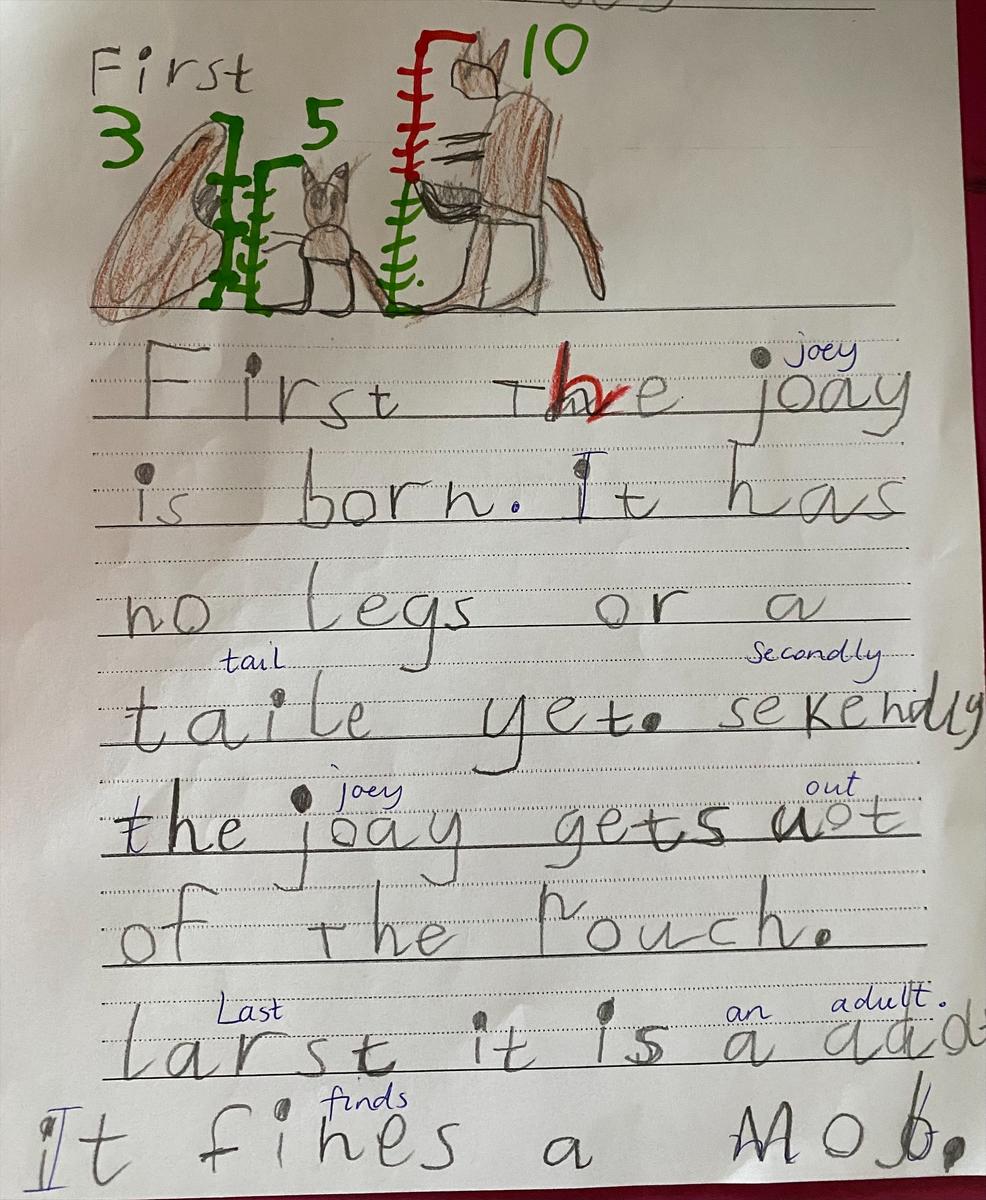 First
3 5 10
joey
First The joay
is born. It has
no legs or a
tail secondly
taile yet. sekendly
joey out
the joay gets uot
of the Pouch.
Last an adult.
larst it is a
finds
It fines a Mob.